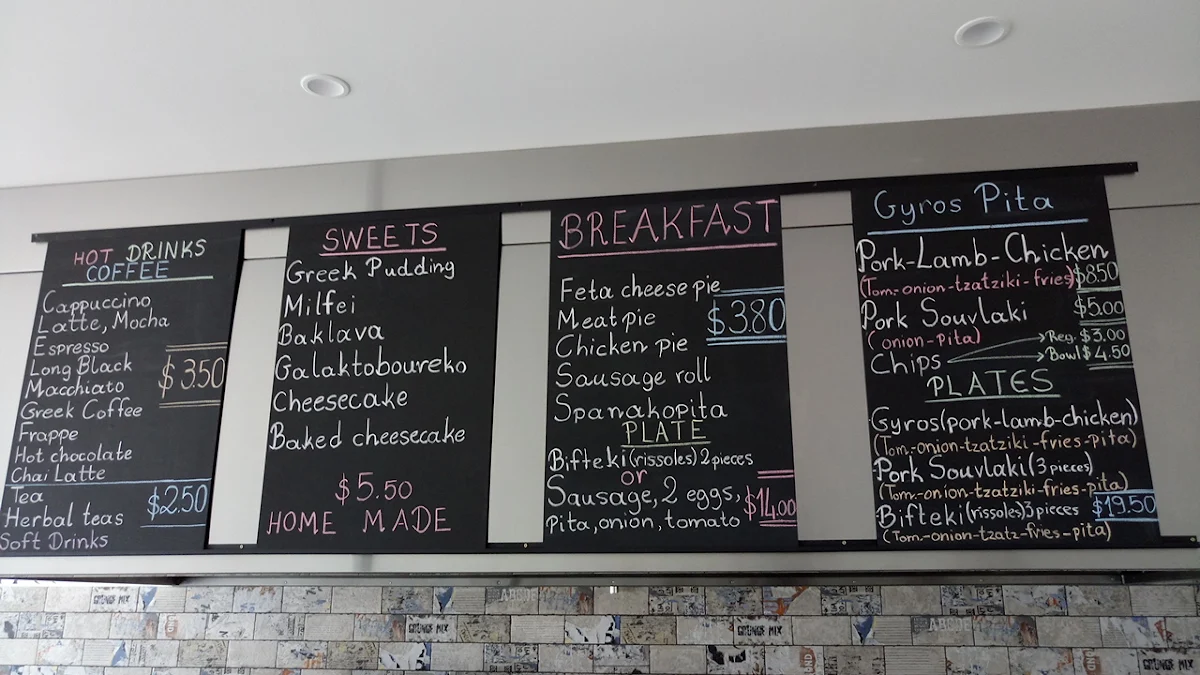 HOT DRINKS
COFFEE
Cappuccino
Latte, Mocha
Espresso
Long Black
$3.50
Macchiato
Greek Coffee
Frappe
Hot chocolate
Chai Latte
Tea
$2.50
Herbal teas
Soft Drinks
SWEETS
Greek Pudding
Milfei
Baklava
Galaktoboureko
Cheesecake
Baked cheesecake
$5.50
HOME MADE
BREAKFAST
Feta cheese pie
Meat pie $3.80
Chicken pie
Sausage roll
Spanakopita
PLATE
Bifteki (rissoles) 2 pieces
or
Sausage, 2 eggs, $14.00
Pita, onion, tomato
Gyros Pita
Pork-Lamb-Chicken
(Tom.-onion-tzatziki-fries) $8.50
Pork Souvlaki $5.00
(onion-pita)
Chips Reg. $3.00
Bowl $4.50
PLATES
Gyros (pork-lamb-chicken)
(Tom-onion-tzatziki-fries-pita)
Pork Souvlaki (3 pieces)
(Tom.-onion-tzatziki-fries-pita)
Bifteki (rissoles) 3 pieces $19.50
(Tom.-onion-tzatz-fries-pita)
GRUNGE MIX
ABCDE
GRUNGE MIX
GRUNGE MIX
ABCDE
GRUNGE MIX
GRUNGE MIX